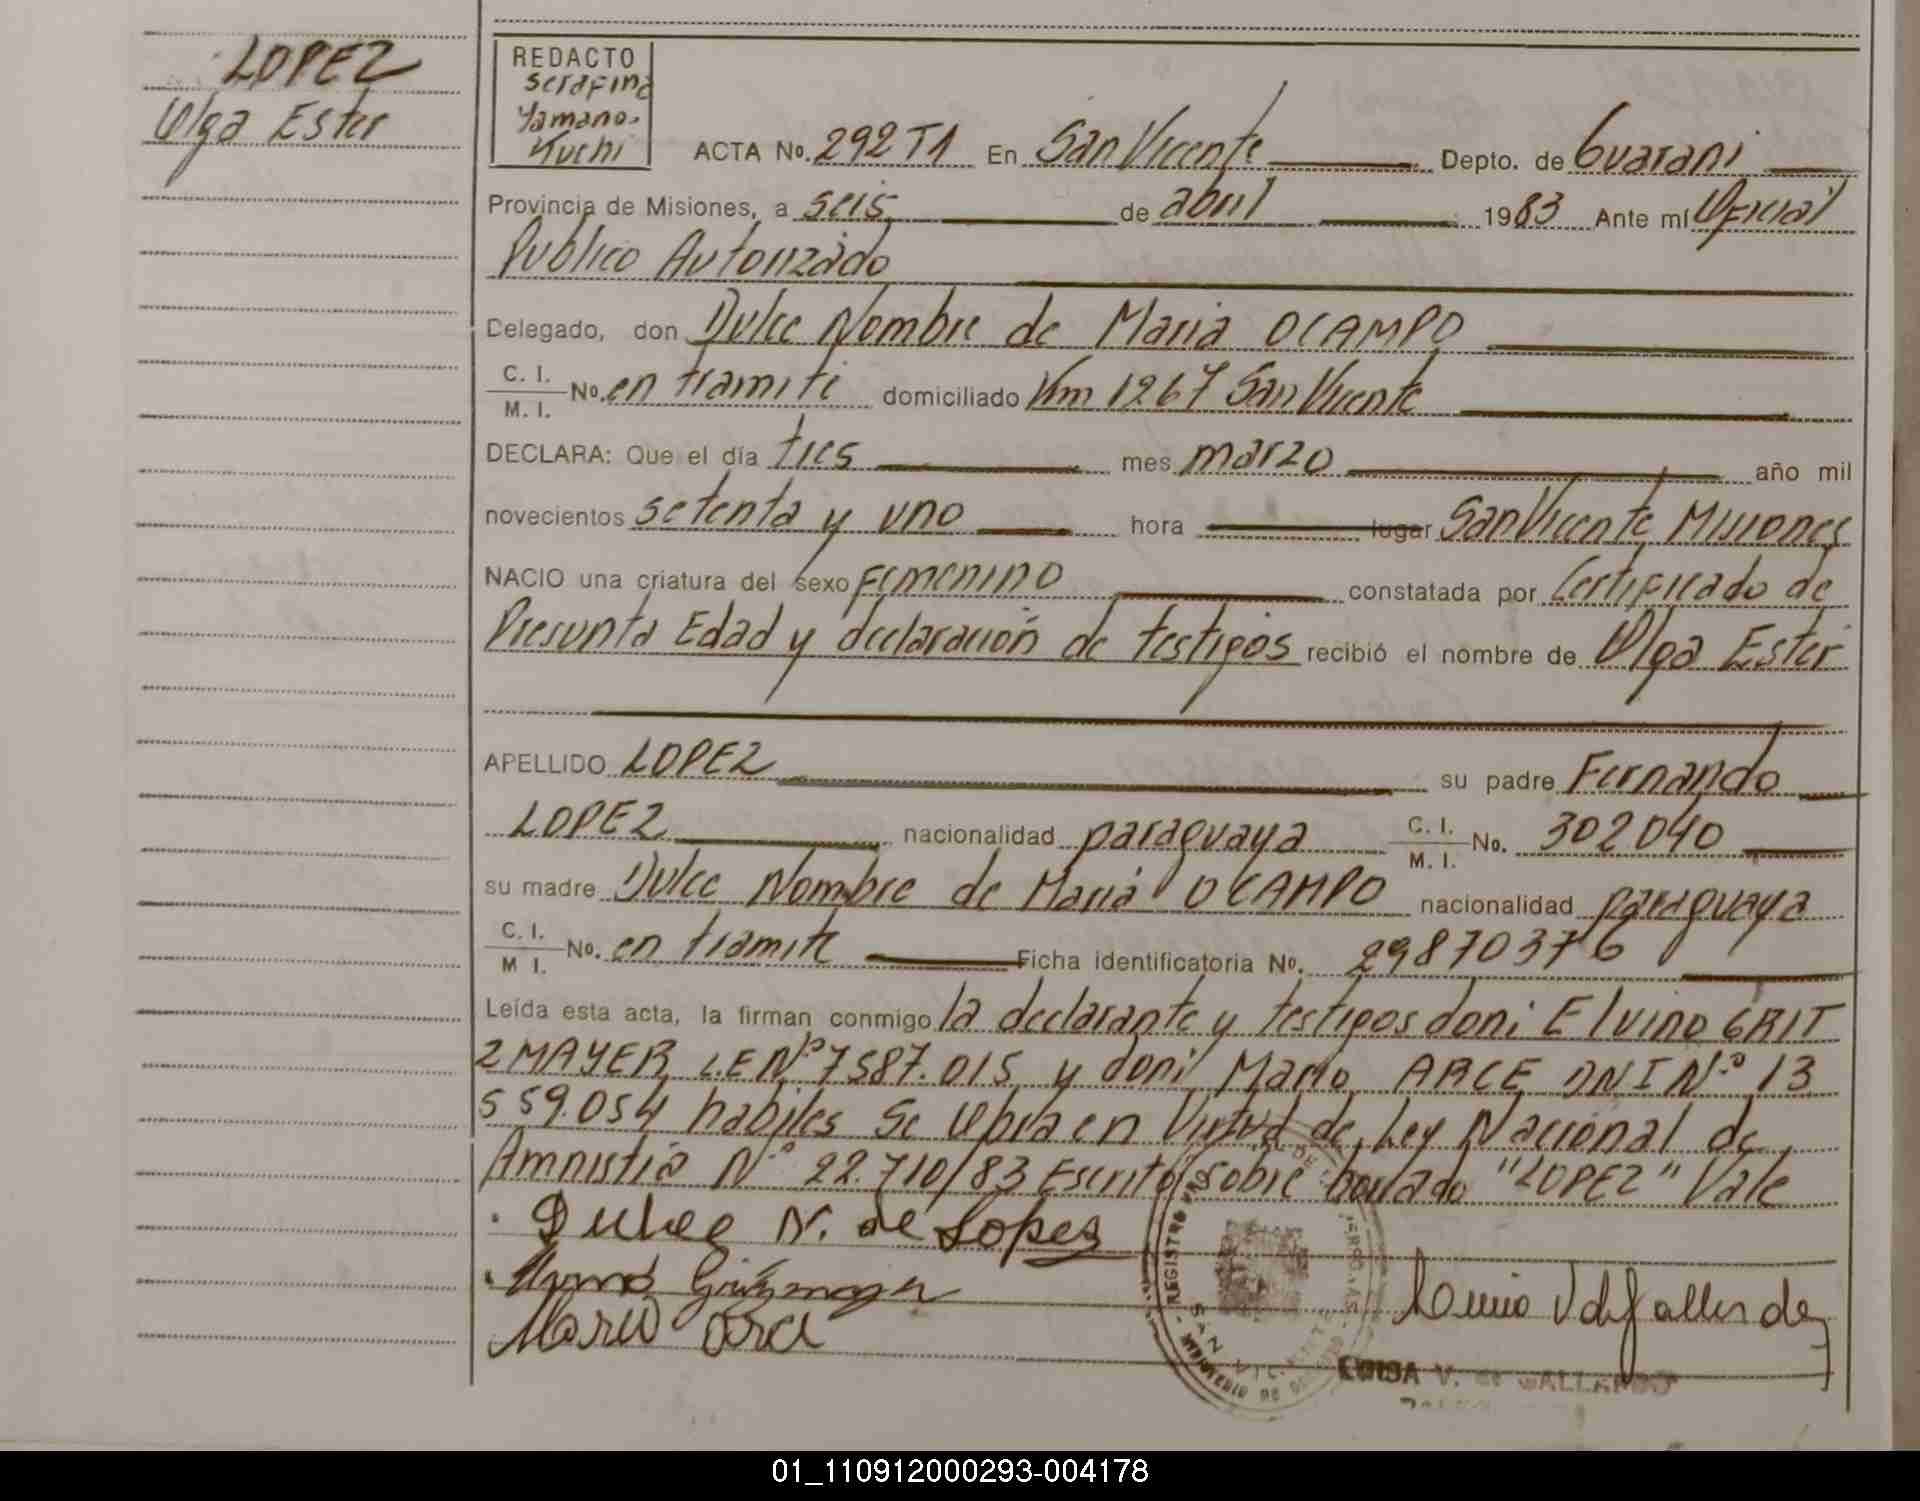 LOPEZ
Olga Ester
REDACTO
Serafina
Yamano-
Kuchi
ACTA No. 292 T1 En San Vicente Depto. de Guarani
Provincia de Misiones, a seis de abril 1983 Ante mí Oficial
Publico Autorizado
Delegado, don Dulce Nombre de Maria OCAMPO
C. I.
M. I. No. en tramite domiciliado Km 1267 San Vicente
DECLARA: Que el día tres mes marzo año mil
novecientos setenta y uno hora lugar San Vicente Misiones
NACIO una criatura del sexo Femenino constatada por Certificado de
Presunta Edad y declaración de testigos recibió el nombre de Olga Ester
APELLIDO LOPEZ su padre Fernando
LOPEZ nacionalidad paraguaya C. I. M. I. No. 302040
su madre Dulce Nombre de Maria OCAMPO nacionalidad paraguaya
C. I.
M I. No. en tramite Ficha identificatoria No. 29870376
Leída esta acta, la firman conmigo la declarante y testigos doni Elvino GRIT
ZMAYER L.E Nº 7587.015 y doni Mario ARCE DNI Nº 13
559.054 habiles Se labra en Virtud de Ley Nacional de
Amnistia Nº 22.710/83 Escrito sobre borrado "LOPEZ" Vale
Dulce N. de Lopez
Mario Arce
REGISTRO
SAN VICENTE
V. de GALLARDO
01_110912000293-004178